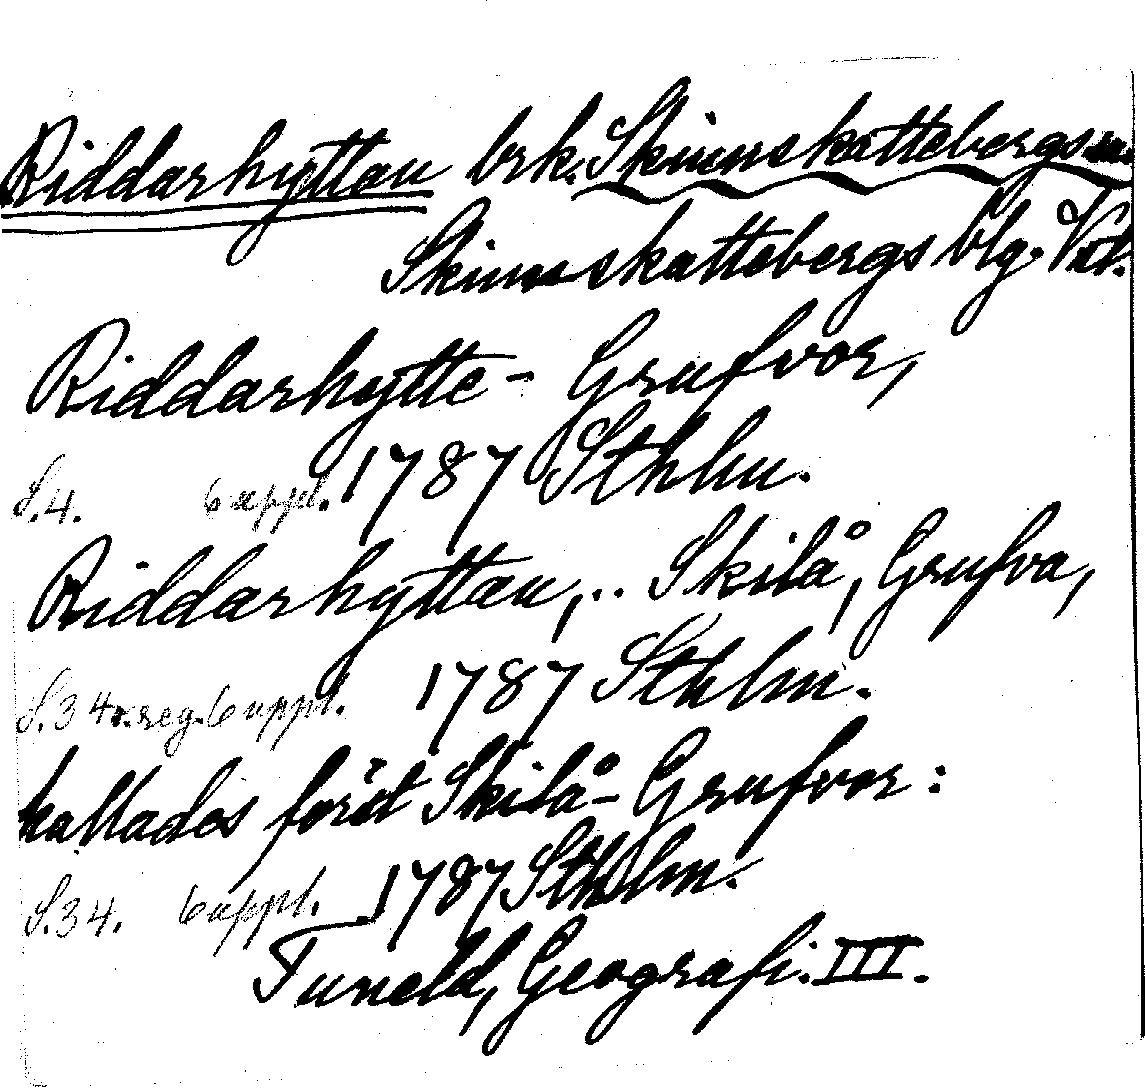 Riddarhyttan brk. Skinnskattebergs sn
Skinnskattebergs blg. Vstl.
Riddarhytte- Grufvor,
S.4. 6 uppl. 1787 Sthlm.
Riddarhyttan,.. Skilå, Grufva,
S.34 reg. 6 uppl. 1787 Sthlm.
kallades förut Skilå- Grufvor:
S.34. 6 uppl. 1787 Sthlm.
Tuneld, Geografi. III.